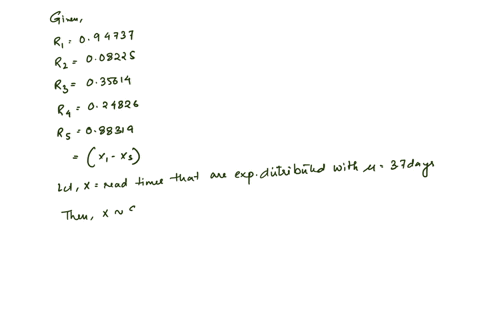 Given,
R1 = 0.94737
R2 = 0.08225
R3 = 0.35614
R4 = 0.24826
R5 = 0.88319
= (x1 - x5)
Let, x = read times that are exp. distributed with μ = 37 days
Then, x ~